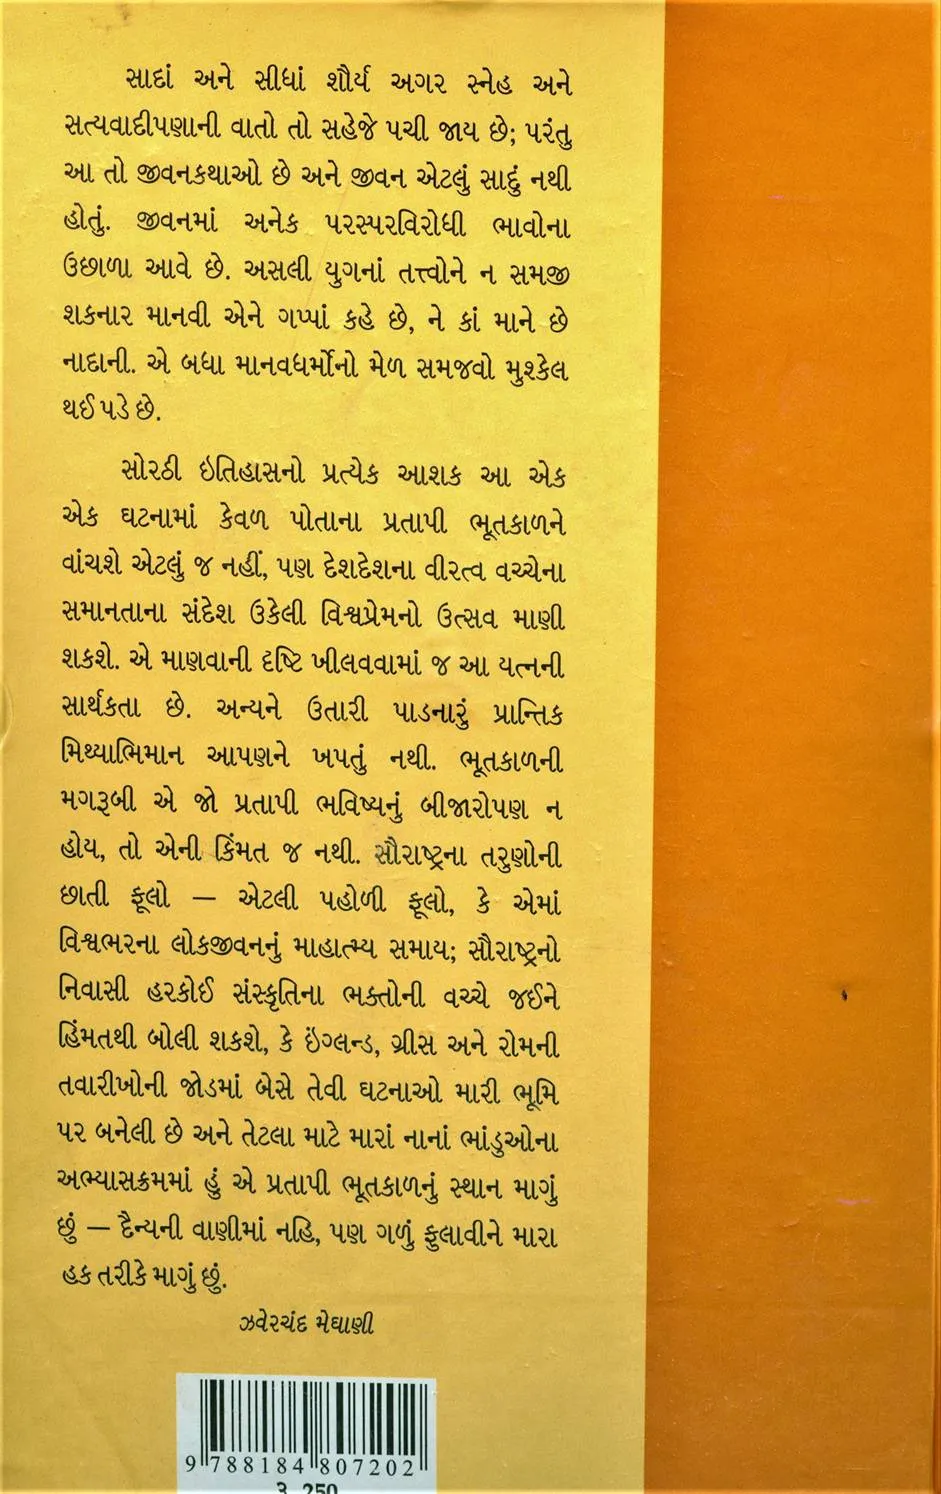 સાદાં અને સીધાં શૌર્ય અગર સ્નેહ અને
સત્યવાદીપણાની વાતો તો સહેજે પચી જાય છે; પરંતુ
આ તો જીવનકથાઓ છે અને જીવન એટલું સાદું નથી
હોતું. જીવનમાં અનેક પરસ્પરવિરોધી ભાવોના
ઉછાળા આવે છે. અસલી યુગનાં તત્ત્વોને ન સમજી
શકનાર માનવી એને ગપ્પાં કહે છે, ને કાં માને છે
નાદાની. એ બધા માનવધર્મોનો મેળ સમજવો મુશ્કેલ
થઈ પડે છે.
સોરઠી ઇતિહાસનો પ્રત્યેક આશક આ એક
એક ઘટનામાં કેવળ પોતાના પ્રતાપી ભૂતકાળને
વાંચશે એટલું જ નહીં, પણ દેશદેશના વીરત્વ વચ્ચેના
સમાનતાના સંદેશ ઉકેલી વિશ્વપ્રેમનો ઉત્સવ માણી
શકશે. એ માણવાની દૃષ્ટિ ખીલવવામાં જ આ યત્નની
સાર્થકતા છે. અન્યને ઉતારી પાડનારું પ્રાન્તિક
મિથ્યાભિમાન આપણને ખપતું નથી. ભૂતકાળની
મગરૂબી એ જો પ્રતાપી ભવિષ્યનું બીજારોપણ ન
હોય, તો એની કિંમત જ નથી. સૌરાષ્ટ્રના તરુણોની
છાતી ફૂલો — એટલી પહોળી ફૂલો, કે એમાં
વિશ્વભરના લોકજીવનનું માહાત્મ્ય સમાય; સૌરાષ્ટ્રનો
નિવાસી હરકોઈ સંસ્કૃતિના ભક્તોની વચ્ચે જઈને
હિંમતથી બોલી શકશે, કે ઇંગ્લન્ડ, ગ્રીસ અને રોમની
તવારીખોની જોડમાં બેસે તેવી ઘટનાઓ મારી ભૂમિ
પર બનેલી છે અને તેટલા માટે મારાં નાનાં ભાંડુઓના
અભ્યાસક્રમમાં હું એ પ્રતાપી ભૂતકાળનું સ્થાન માગું
છું — દૈન્યની વાણીમાં નહિ, પણ ગળું ફુલાવીને મારા
હક તરીકે માગું છું.
ઝવેરચંદ મેઘાણી
9 788184 807202
રૂ. 250